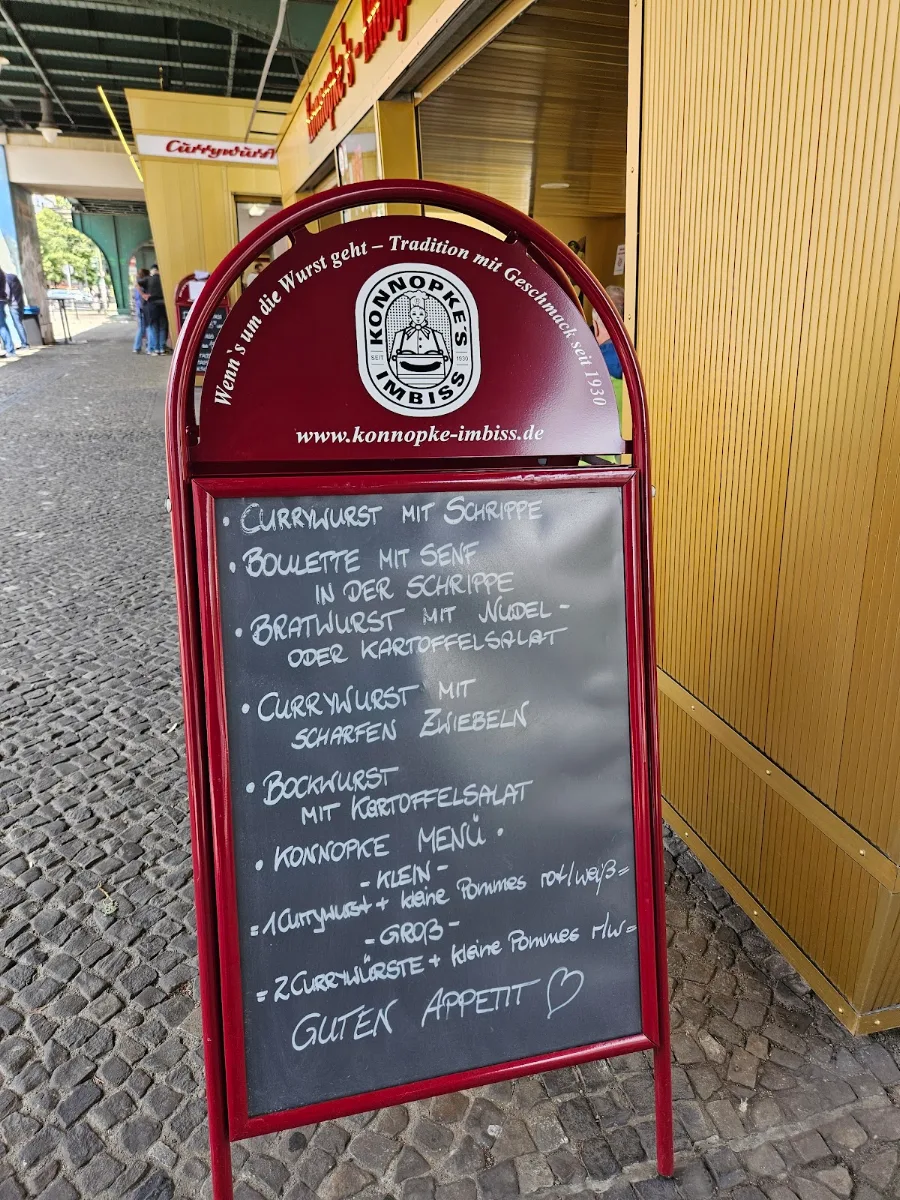 Konnopke's-Imbiß
Currywurst
Wenn`s um die Wurst geht – Tradition mit Geschmack seit 1930
KONNOPKE'S
SEIT 1930
IMBISS
www.konnopke-imbiss.de
• CURRYWURST MIT SCHRIPPE
• BOULETTE MIT SENF
IN DER SCHRIPPE
• BRATWURST MIT NUDEL-
ODER KARTOFFELSALAT
• CURRYWURST MIT
SCHARFEN ZWIEBELN
• BOCKWURST
MIT KARTOFFELSALAT
• KONNOPKE MENÜ •
- KLEIN -
= 1 Currywurst + kleine Pommes rot/weiß =
- GROß -
= 2 CURRYWÜRSTE + kleine Pommes r/w =
GUTEN APPETIT ♡